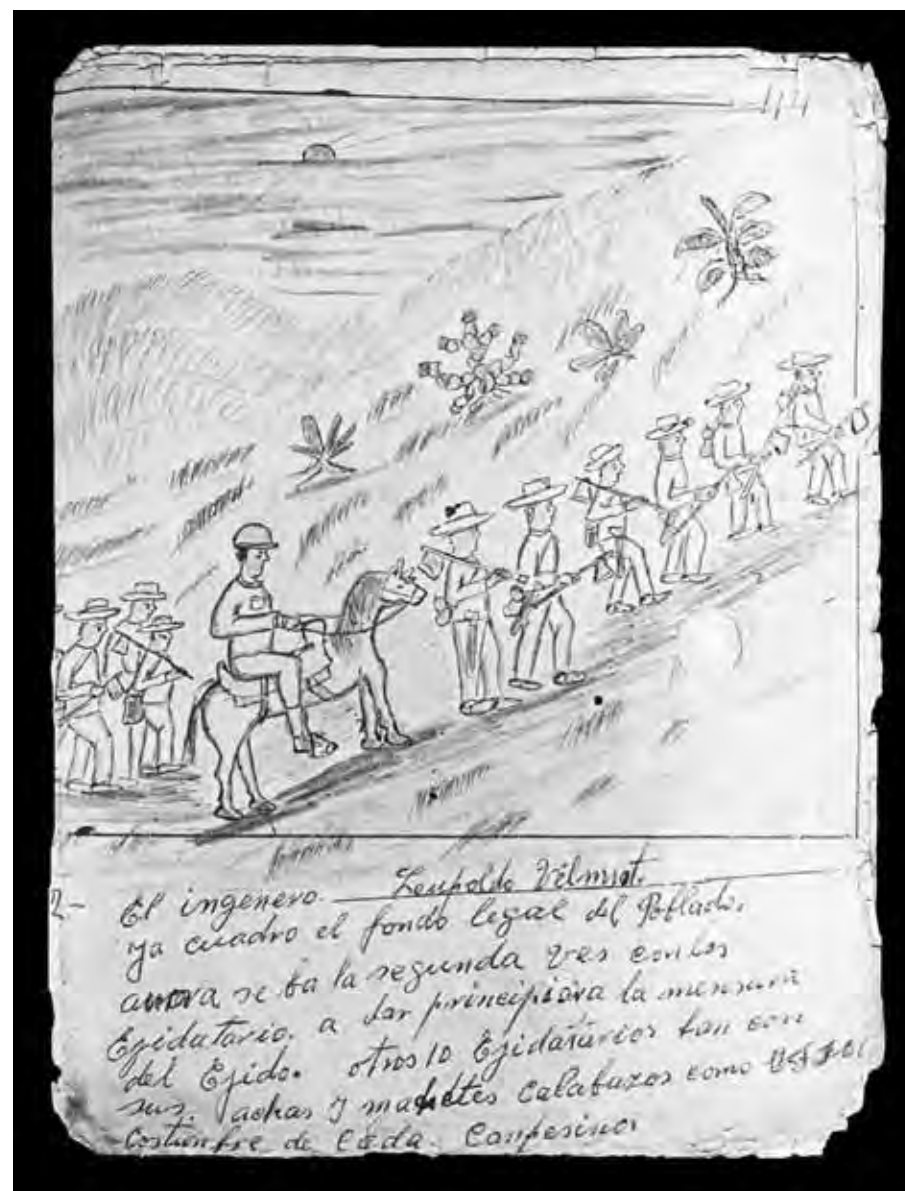 2- El ingenero. Leupoldo
ya cuadro el fondo legal del Poblado.
se ba la segunda ves con los
Egidatario. a dar principio a la mensura
del Egido. otros 10 Egidatarios ban con
sus. achas y machetes calabazos como
Costunbre de Cada Canpesino